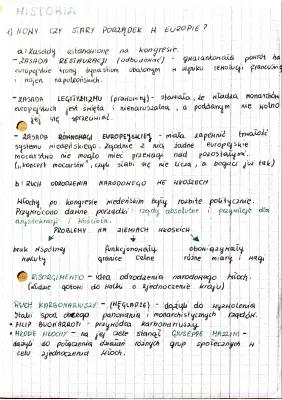 HISTORIA
1) NOWY CZY STARY PORZĄDEK W EUROPIE?
a) Zasady ustanowione na kongresie.
- ZASADA RESTAURACJI (odbudować) - gwarantowała powrót na
europejskie trony dynastiom obalonym w wyniku rewolucji francuskiej
i wojen napoleońskich.
- ZASADA LEGITYMIZMU (prawowity) - stanowiła, że władza monarchów
europejskich jest święta i nienaruszalna, a poddanym nie wolno
jej się sprzeciwiać.
- ZASADA RÓWNOWAGI EUROPEJSKIEJ - miała zapewnić trwałość
systemu wiedeńskiego. Zgodnie z nią żadne europejskie
mocarstwo nie mogło mieć przewagi nad pozostałymi.
("koncert mocarstw", czyli słabi się nie liczą, a bogaci już tak)
b) RUCH ODRODZENIA NARODOWEGO WE WŁOSZECH
Włochy po kongresie wiedeńskim były rozbite politycznie.
Przywrócono dawne porządki: rządy absolutne i przywileje dla
arystokracji i Kościoła.
PROBLEMY NA ZIEMIACH WŁOSKICH
brak wspólnej funkcjonowały obowiązywały
waluty granice celne różne miary i wagi
RISORGIMENTO - idea odrodzenia narodowego Włoch.
(Ludzie gotowi do walki o zjednoczenie kraju)
RUCH KARBONARIUSZY - (WĘGLARZE) - dążyli do wyzwolenia
Italii spod obcego panowania i monarchistycznych rządów.
• FILIP BUONARROTI - przywódca karbonariuszy
• MŁODE WŁOCHY - na jej czele stanął GIUSEPPE MAZZINI -
dążyli do połączenia działań różnych grup społecznych w
celu zjednoczenia Włoch.